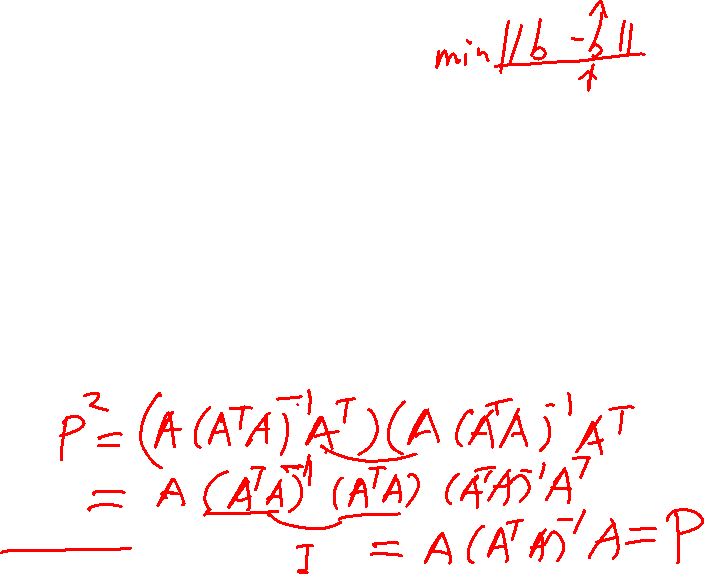 min ||b - b̂||
↑
P² = (A (AᵀA)⁻¹ Aᵀ)(A (AᵀA)⁻¹ Aᵀ
= A (AᵀA)⁻¹ (AᵀA) (AᵀA)⁻¹ Aᵀ
I = A (AᵀA)⁻¹ A = P